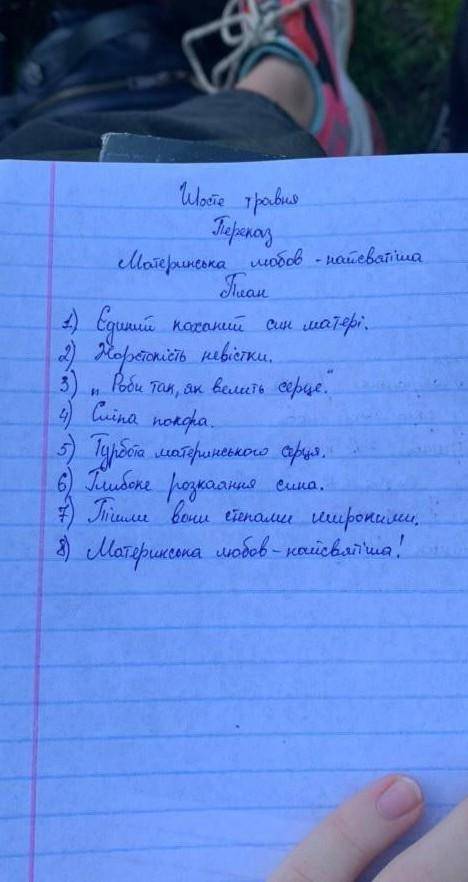 Шосте травня
Переказ
Материнська любов - найсвятіша
План
1) Єдиний коханий син матері.
2) Жорстокість невістки.
3) „Роби так, як велить серце."
4) Сліпа покора.
5) Турбота материнського серця.
6) Глибоке розкаяння сина.
7) Пішли вони степами широкими.
8) Материнська любов - найсвятіша!